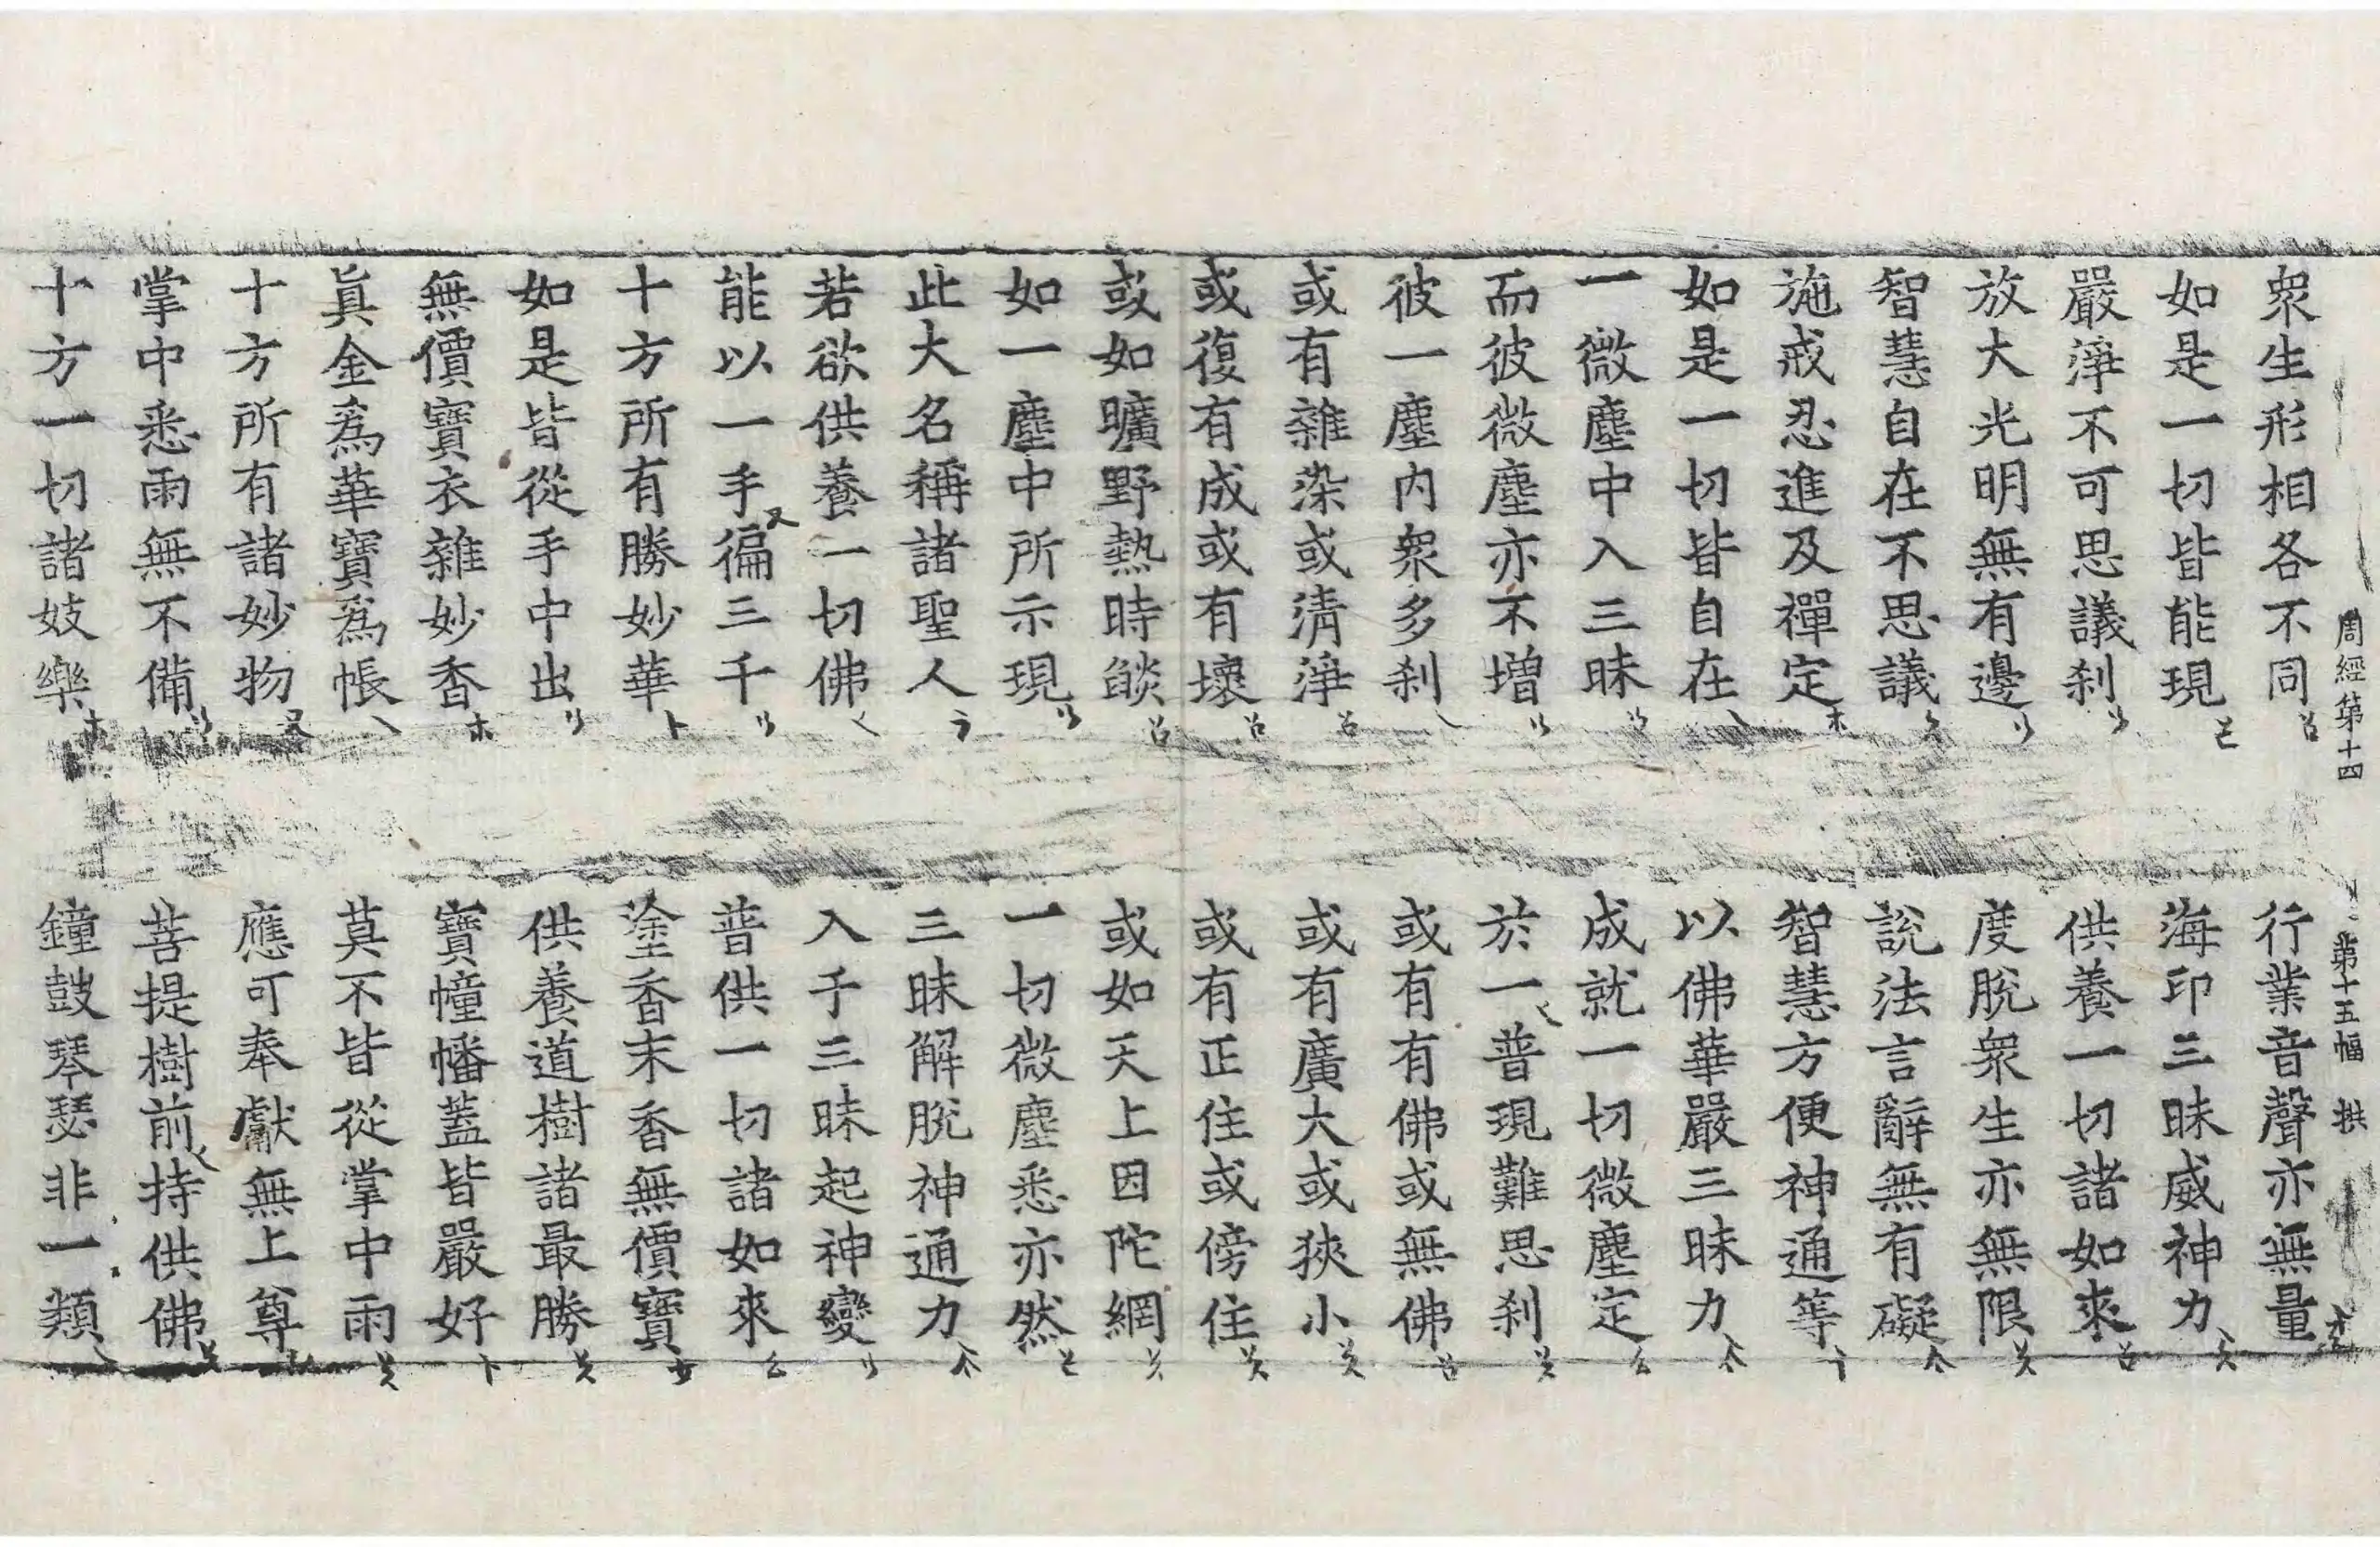 周經第十四 第十五幅 拱
衆生形相各不同 行業音聲亦無量
如是一切皆能現 海印三昧威神力
嚴淨不可思議刹 供養一切諸如來
放大光明無有邊 度脫衆生亦無限
智慧自在不思議 說法言辭無有礙
施戒忍進及禪定 智慧方便神通等
如是一切皆自在 以佛華嚴三昧力
一微塵中入三昧 成就一切微塵定
而彼微塵亦不增 於一普現難思刹
彼一塵內衆多刹 或有有佛或無佛
或有雜染或淸淨 或有廣大或狹小
或復有成或有壞 或有正住或傍住
或如曠野熱時燄 或如天上因陀網
如一塵中所示現 一切微塵悉亦然
此大名稱諸聖人 三昧解脫神通力
若欲供養一切佛 入于三昧起神變
能以一手徧三千 普供一切諸如來
十方所有勝妙華 塗香末香無價寶
如是皆從手中出 供養道樹諸最勝
無價寶衣雜妙香 寶幢幡蓋皆嚴好
眞金爲華寶爲帳 莫不皆從掌中雨
十方所有諸妙物 應可奉獻無上尊
掌中悉雨無不備 菩提樹前持供佛
十方一切諸妓樂 鐘鼓琴瑟非一類